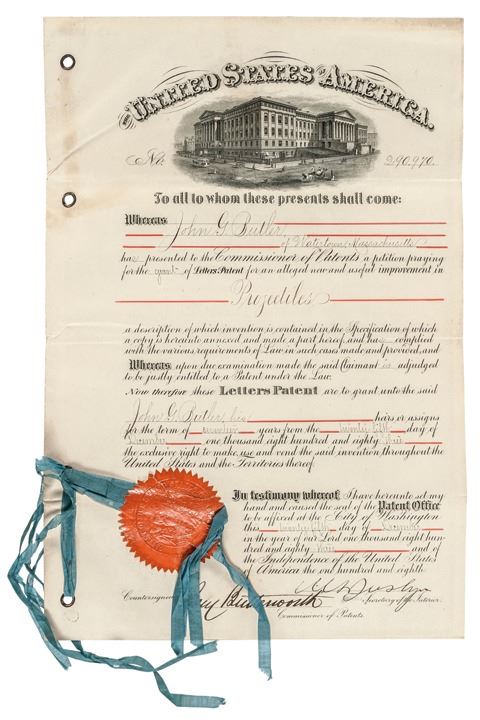 THE UNITED STATES OF AMERICA.
No. 290,970.
To all to whom these presents shall come:
Whereas John G. Butler,
of Watertown, Massachusetts,
has presented to the Commissioner of Patents a petition praying
for the grant of Letters Patent for an alleged new and useful improvement in
Projectiles
a description of which invention is contained in the Specification of which
a copy is hereunto annexed and made a part hereof, and has complied
with the various requirements of Law in such cases made and provided, and
Whereas upon due examination made the said Claimant is adjudged
to be justly entitled to a Patent under the Law.
Now therefore these Letters Patent are to grant unto the said
John G. Butler, his heirs or assigns
for the term of seventeen years from the twenty fifth day of
December one thousand eight hundred and eighty three
the exclusive right to make, use and vend the said invention throughout the
United States and the Territories thereof.
In testimony whereof I have hereunto set my
hand and caused the seal of the Patent Office
to be affixed at the City of Washington
this twenty fifth day of December
in the year of our Lord one thousand eight hun-
dred and eighty three and of
the Independence of the United States
of America the one hundred and eighth.
Countersigned
Benj Butterworth
Secretary of the Interior.
Commissioner of Patents.